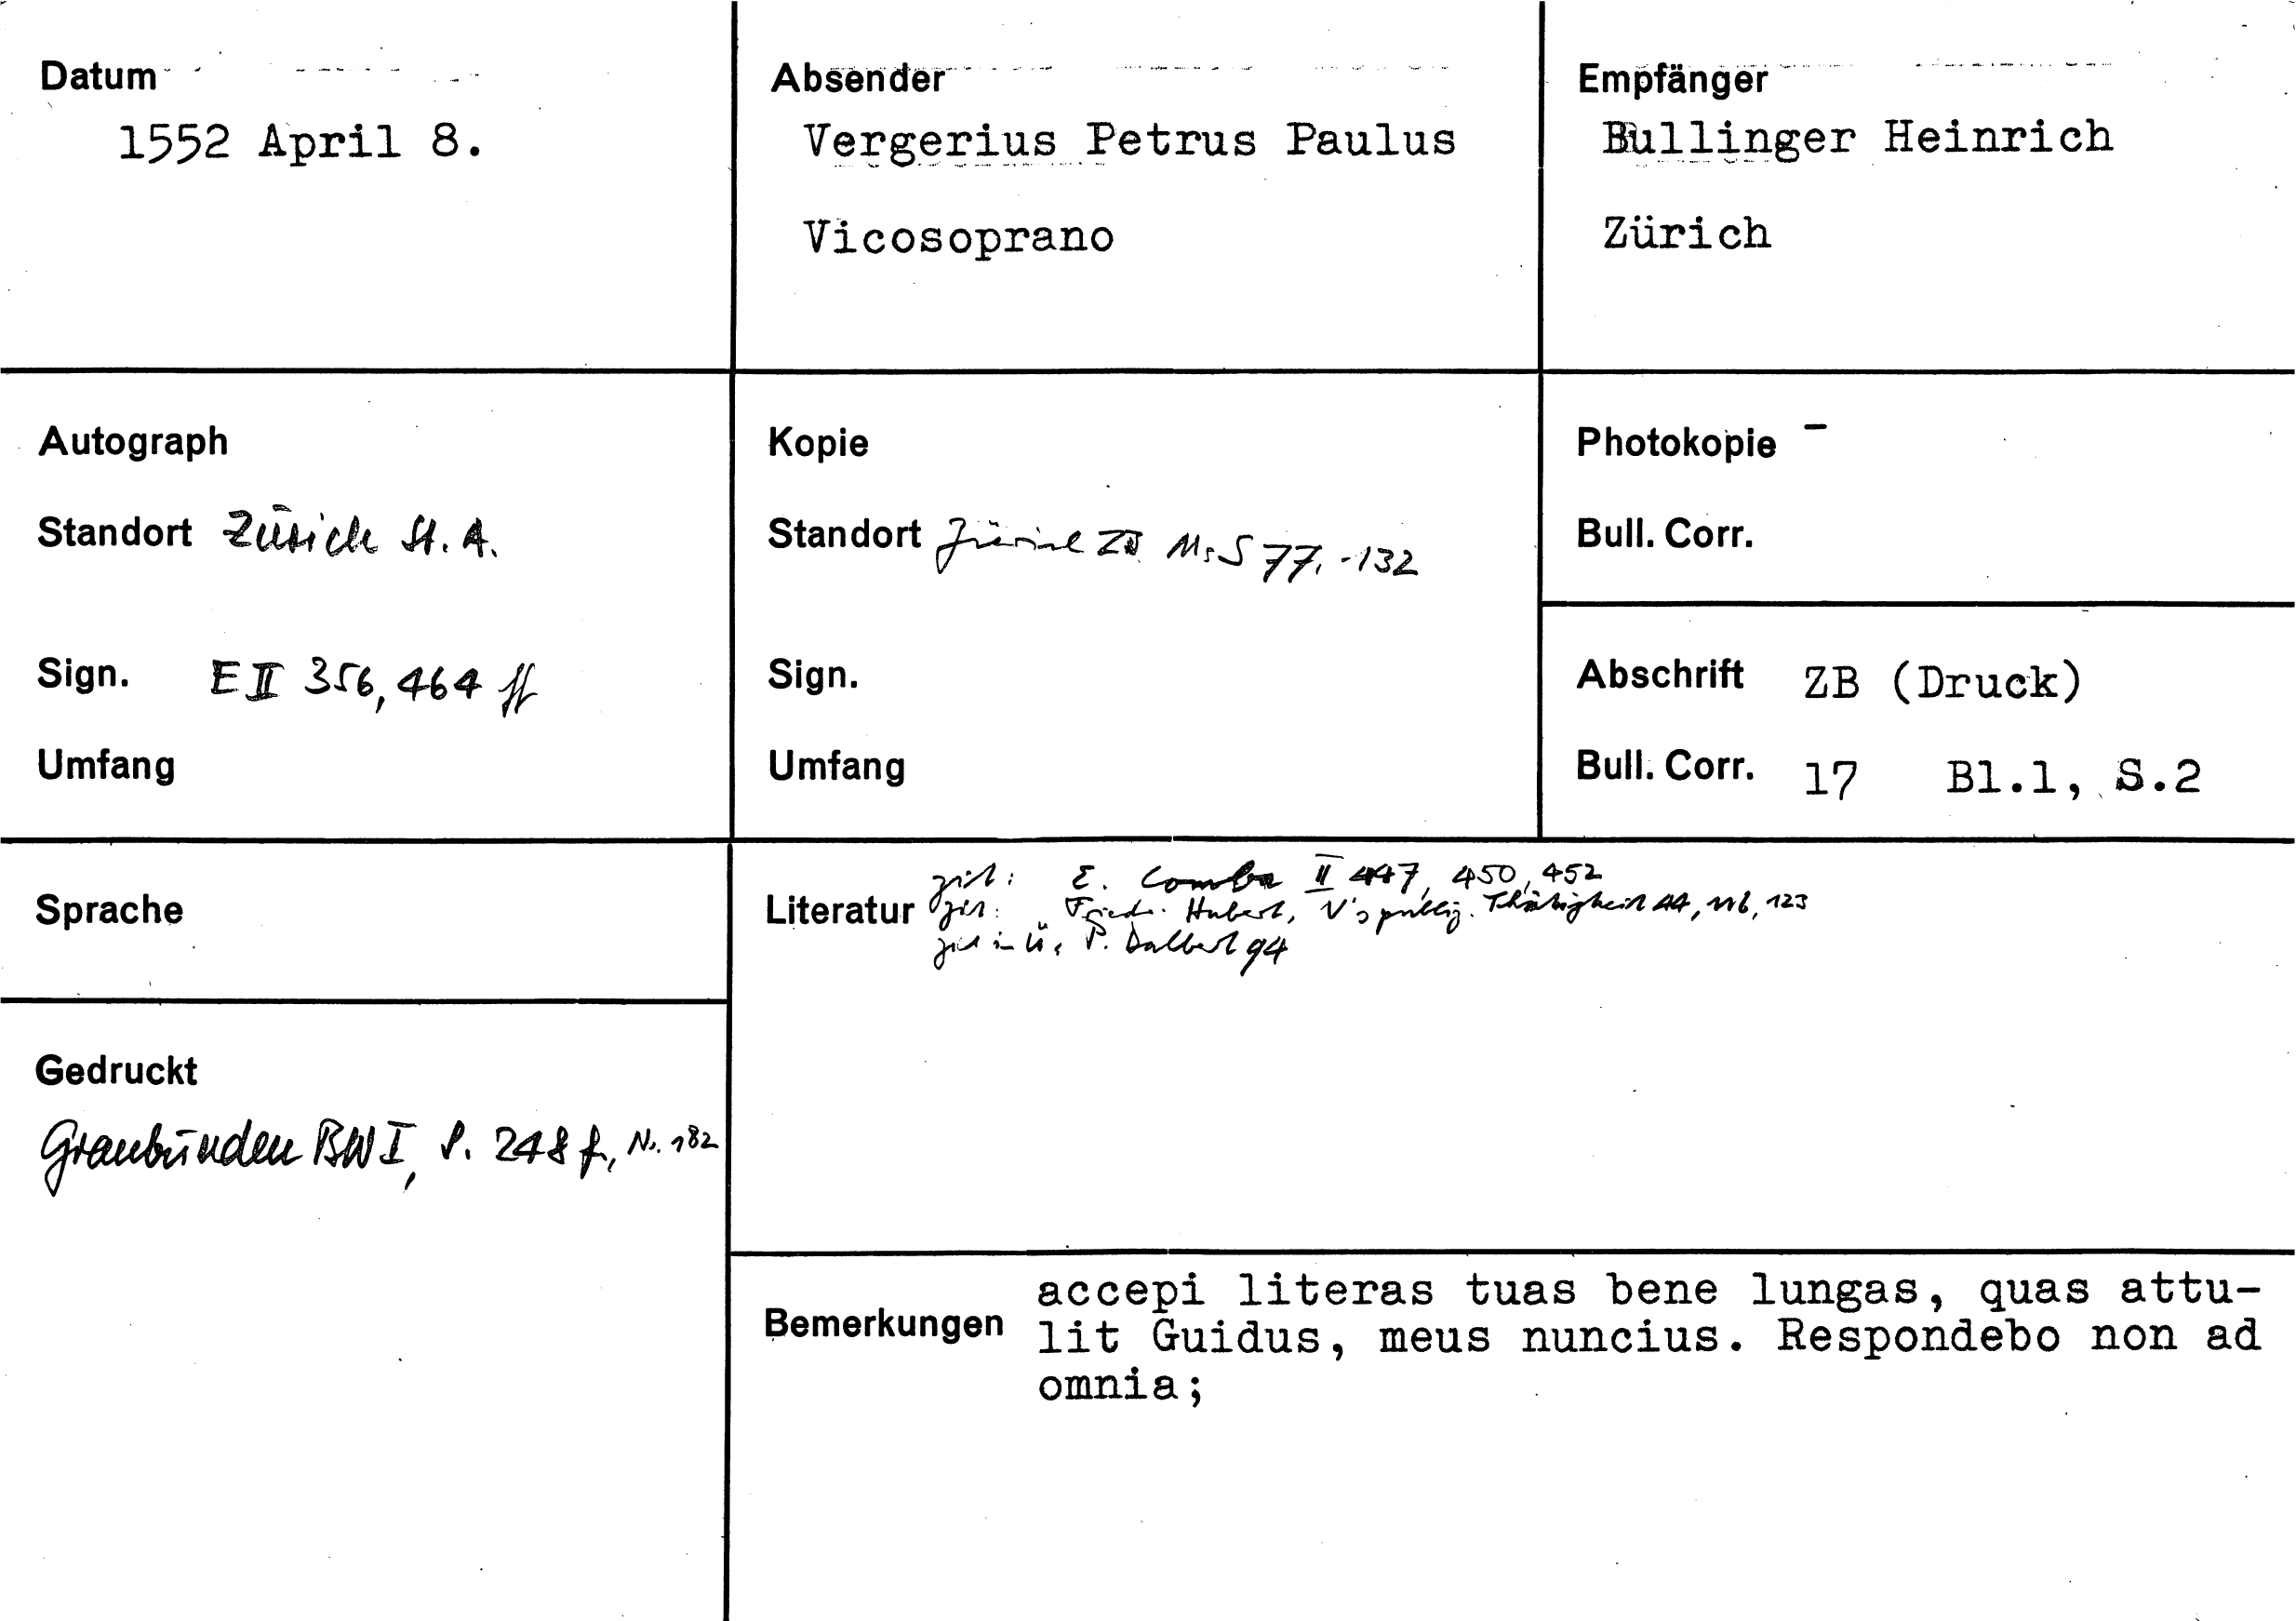 Datum
1552 April 8.
Absender
Vergerius Petrus Paulus
Vicosoprano
Empfänger
Bullinger Heinrich
Zürich
Autograph
Standort Zürich St. A.
Sign. E II 356, 464 ff
Umfang
Kopie
Standort Zürich ZB Ms S 77, -132
Sign.
Umfang
Photokopie -
Bull. Corr.
Abschrift ZB (Druck)
Bull. Corr. 17 Bl.1, S.2
Sprache
Literatur
zit: E. Comba II 447, 450, 452
zit: Friedr. Hubert, V's publiz. Thätigkeit 44, 116, 123
zit in Ü: P. Dalbert 94
Gedruckt
Graubünden BW I, S. 248 f, Nr. 182
Bemerkungen
accepi literas tuas bene lungas, quas attu-
lit Guidus, meus nuncius. Respondebo non ad
omnia;